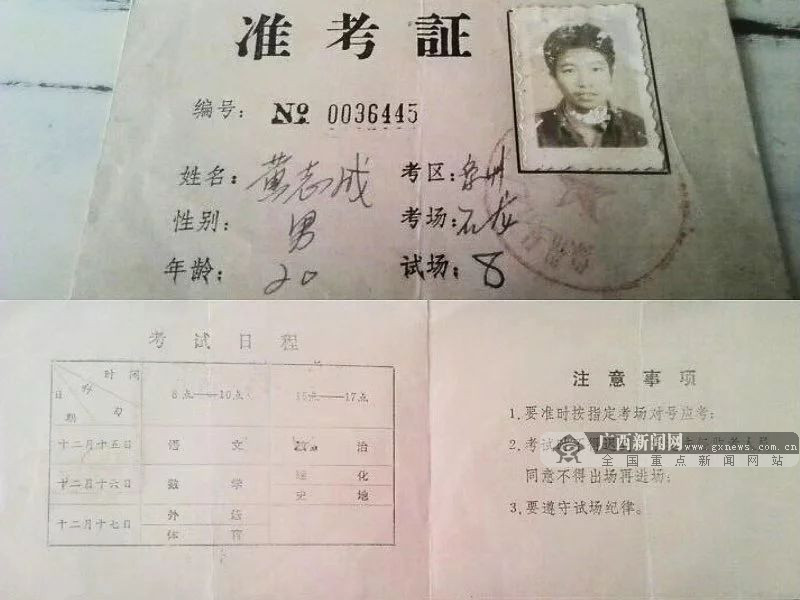 准考証
编号: № 0036445
姓名: 黄志成 考区: 象州
性别: 男 考场: 石龙
年龄: 20 试场: 8
考试日程
时间 8点——10点 15点——17点
日期
十二月十五日 语文 政治
十二月十六日 数学 理化
史地
十二月十七日 外语
体育
注意事项
1.要准时按指定考场对号应考;
2.考试
同意不得出场再进场;
3.要遵守试场纪律。
广西新闻网
www.gxnews.com.cn
全国重点新闻网站